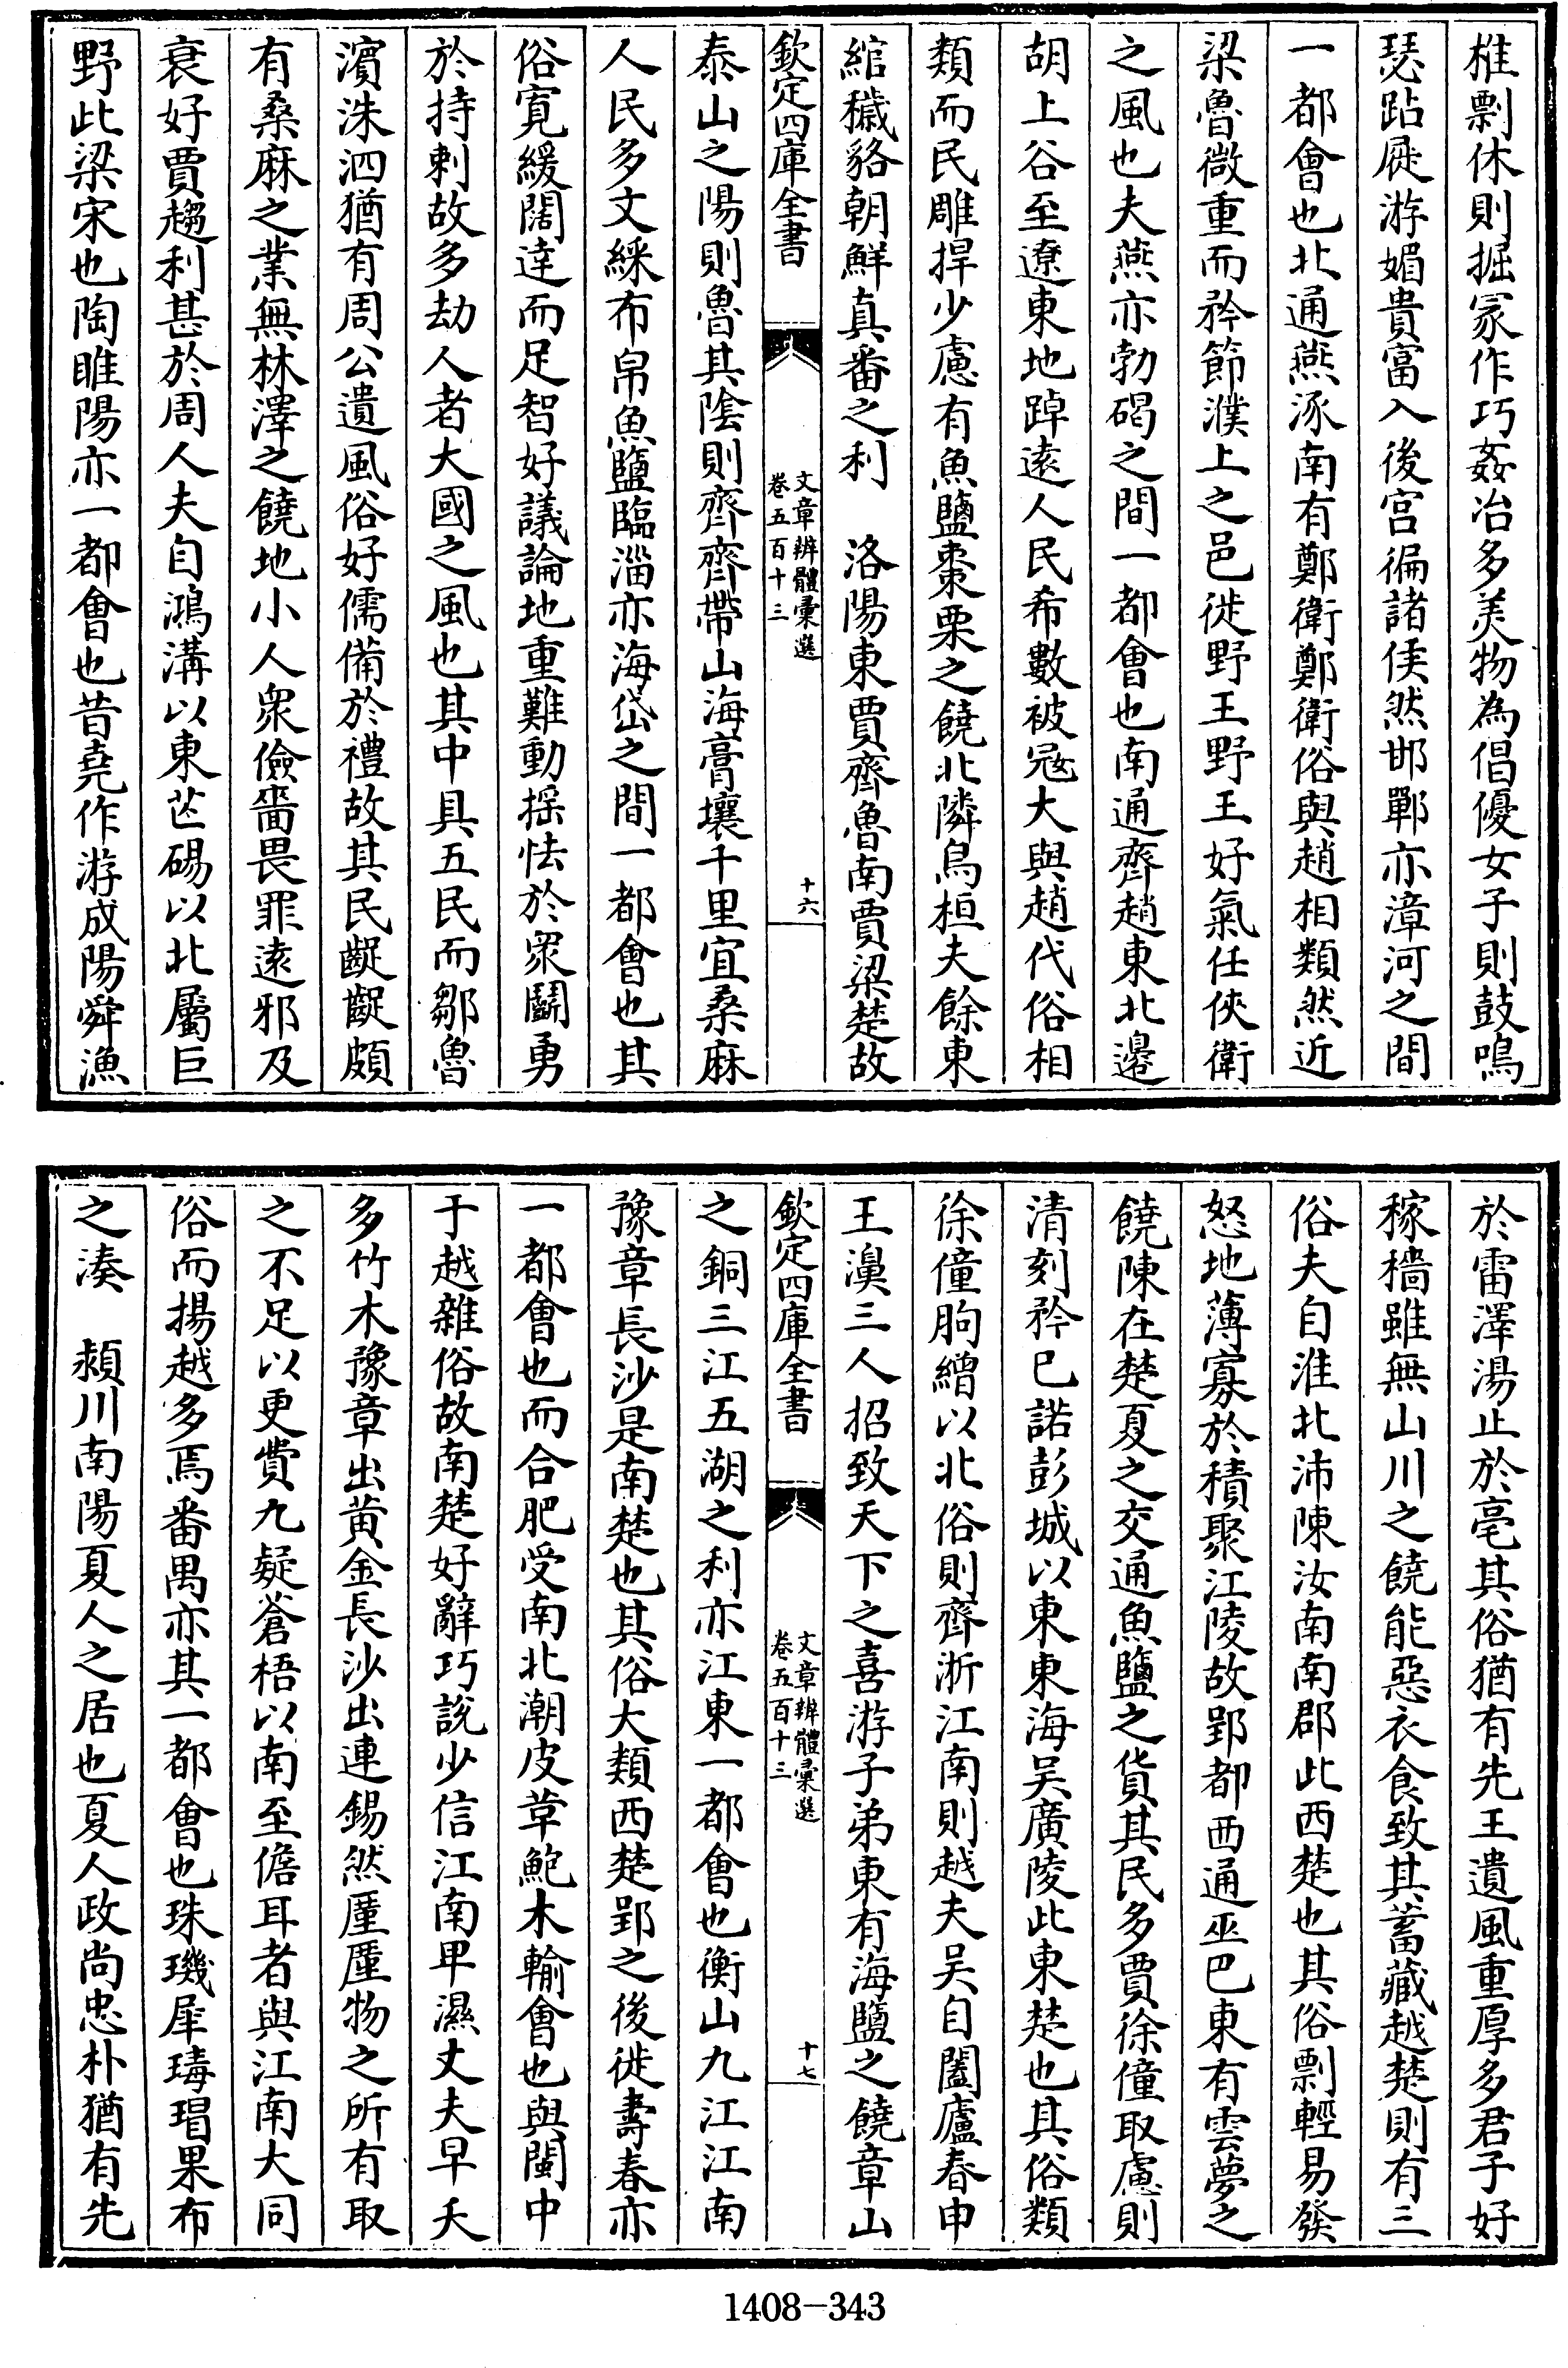 椎剽休則掘冢作巧姦冶多美物為倡優女子則鼓鳴
瑟跕屣游媚貴富入後宫徧諸侯然邯鄲亦漳河之間
一都會也北通燕涿南有鄭衛鄭衛俗與趙相類然近
梁魯微重而矜節濮上之邑徙野王野王好氣任俠衛
之風也夫燕亦勃碣之間一都會也南通齊趙東北邊
胡上谷至遼東地踔逺人民希數被宼大與趙代俗相
類而民雕捍少慮有魚鹽棗栗之饒北隣烏桓夫餘東
綰穢貉朝鮮真番之利　洛陽東賈齊魯南賈梁楚故
欽定四庫全書
文章辨體彚選
卷五百十三
十六
泰山之陽則魯其隂則齊齊帶山海膏壤千里宜桑麻
人民多文綵布帛魚鹽臨淄亦海岱之間一都會也其
俗寛緩闊達而足智好議論地重難動揺怯於衆鬬勇
於持刺故多劫人者大國之風也其中具五民而鄒魯
濵洙泗猶有周公遺風俗好儒備於禮故其民齪齪頗
有桑麻之業無林澤之饒地小人衆儉嗇畏罪逺邪及
衰好賈趨利甚於周人夫自鴻溝以東芒碭以北屬巨
野此梁宋也陶睢陽亦一都會也昔堯作游成陽舜漁
於雷澤湯止於亳其俗猶有先王遺風重厚多君子好
稼穡雖無山川之饒能惡衣食致其蓄藏越楚則有三
俗夫自淮北沛陳汝南南郡此西楚也其俗剽輕易發
怒地薄寡於積聚江陵故郢都西通巫巴東有雲夢之
饒陳在楚夏之交通魚鹽之貨其民多賈徐僮取慮則
清刻矜已諾彭城以東東海吴廣陵此東楚也其俗類
徐僮朐繒以北俗則齊浙江南則越夫吴自闔廬春申
王濞三人招致天下之喜游子弟東有海鹽之饒章山
欽定四庫全書
文章辨體彚選
卷五百十三
十七
之銅三江五湖之利亦江東一都會也衡山九江江南
豫章長沙是南楚也其俗大類西楚郢之後徙壽春亦
一都會也而合肥受南北潮皮革鮑木輸會也與閩中
于越雜俗故南楚好辭巧説少信江南卑濕丈夫早夭
多竹木豫章出黄金長沙出連錫然厪厪物之所有取
之不足以更費九疑蒼梧以南至儋耳者與江南大同
俗而揚越多焉番禺亦其一都會也珠璣犀瑇瑁果布
之湊　潁川南陽夏人之居也夏人政尚忠朴猶有先
1408-343